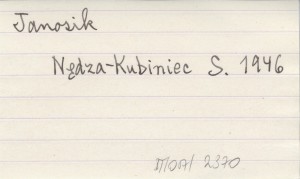 Janosik
Nędza-Kubiniec S. 1946
2370